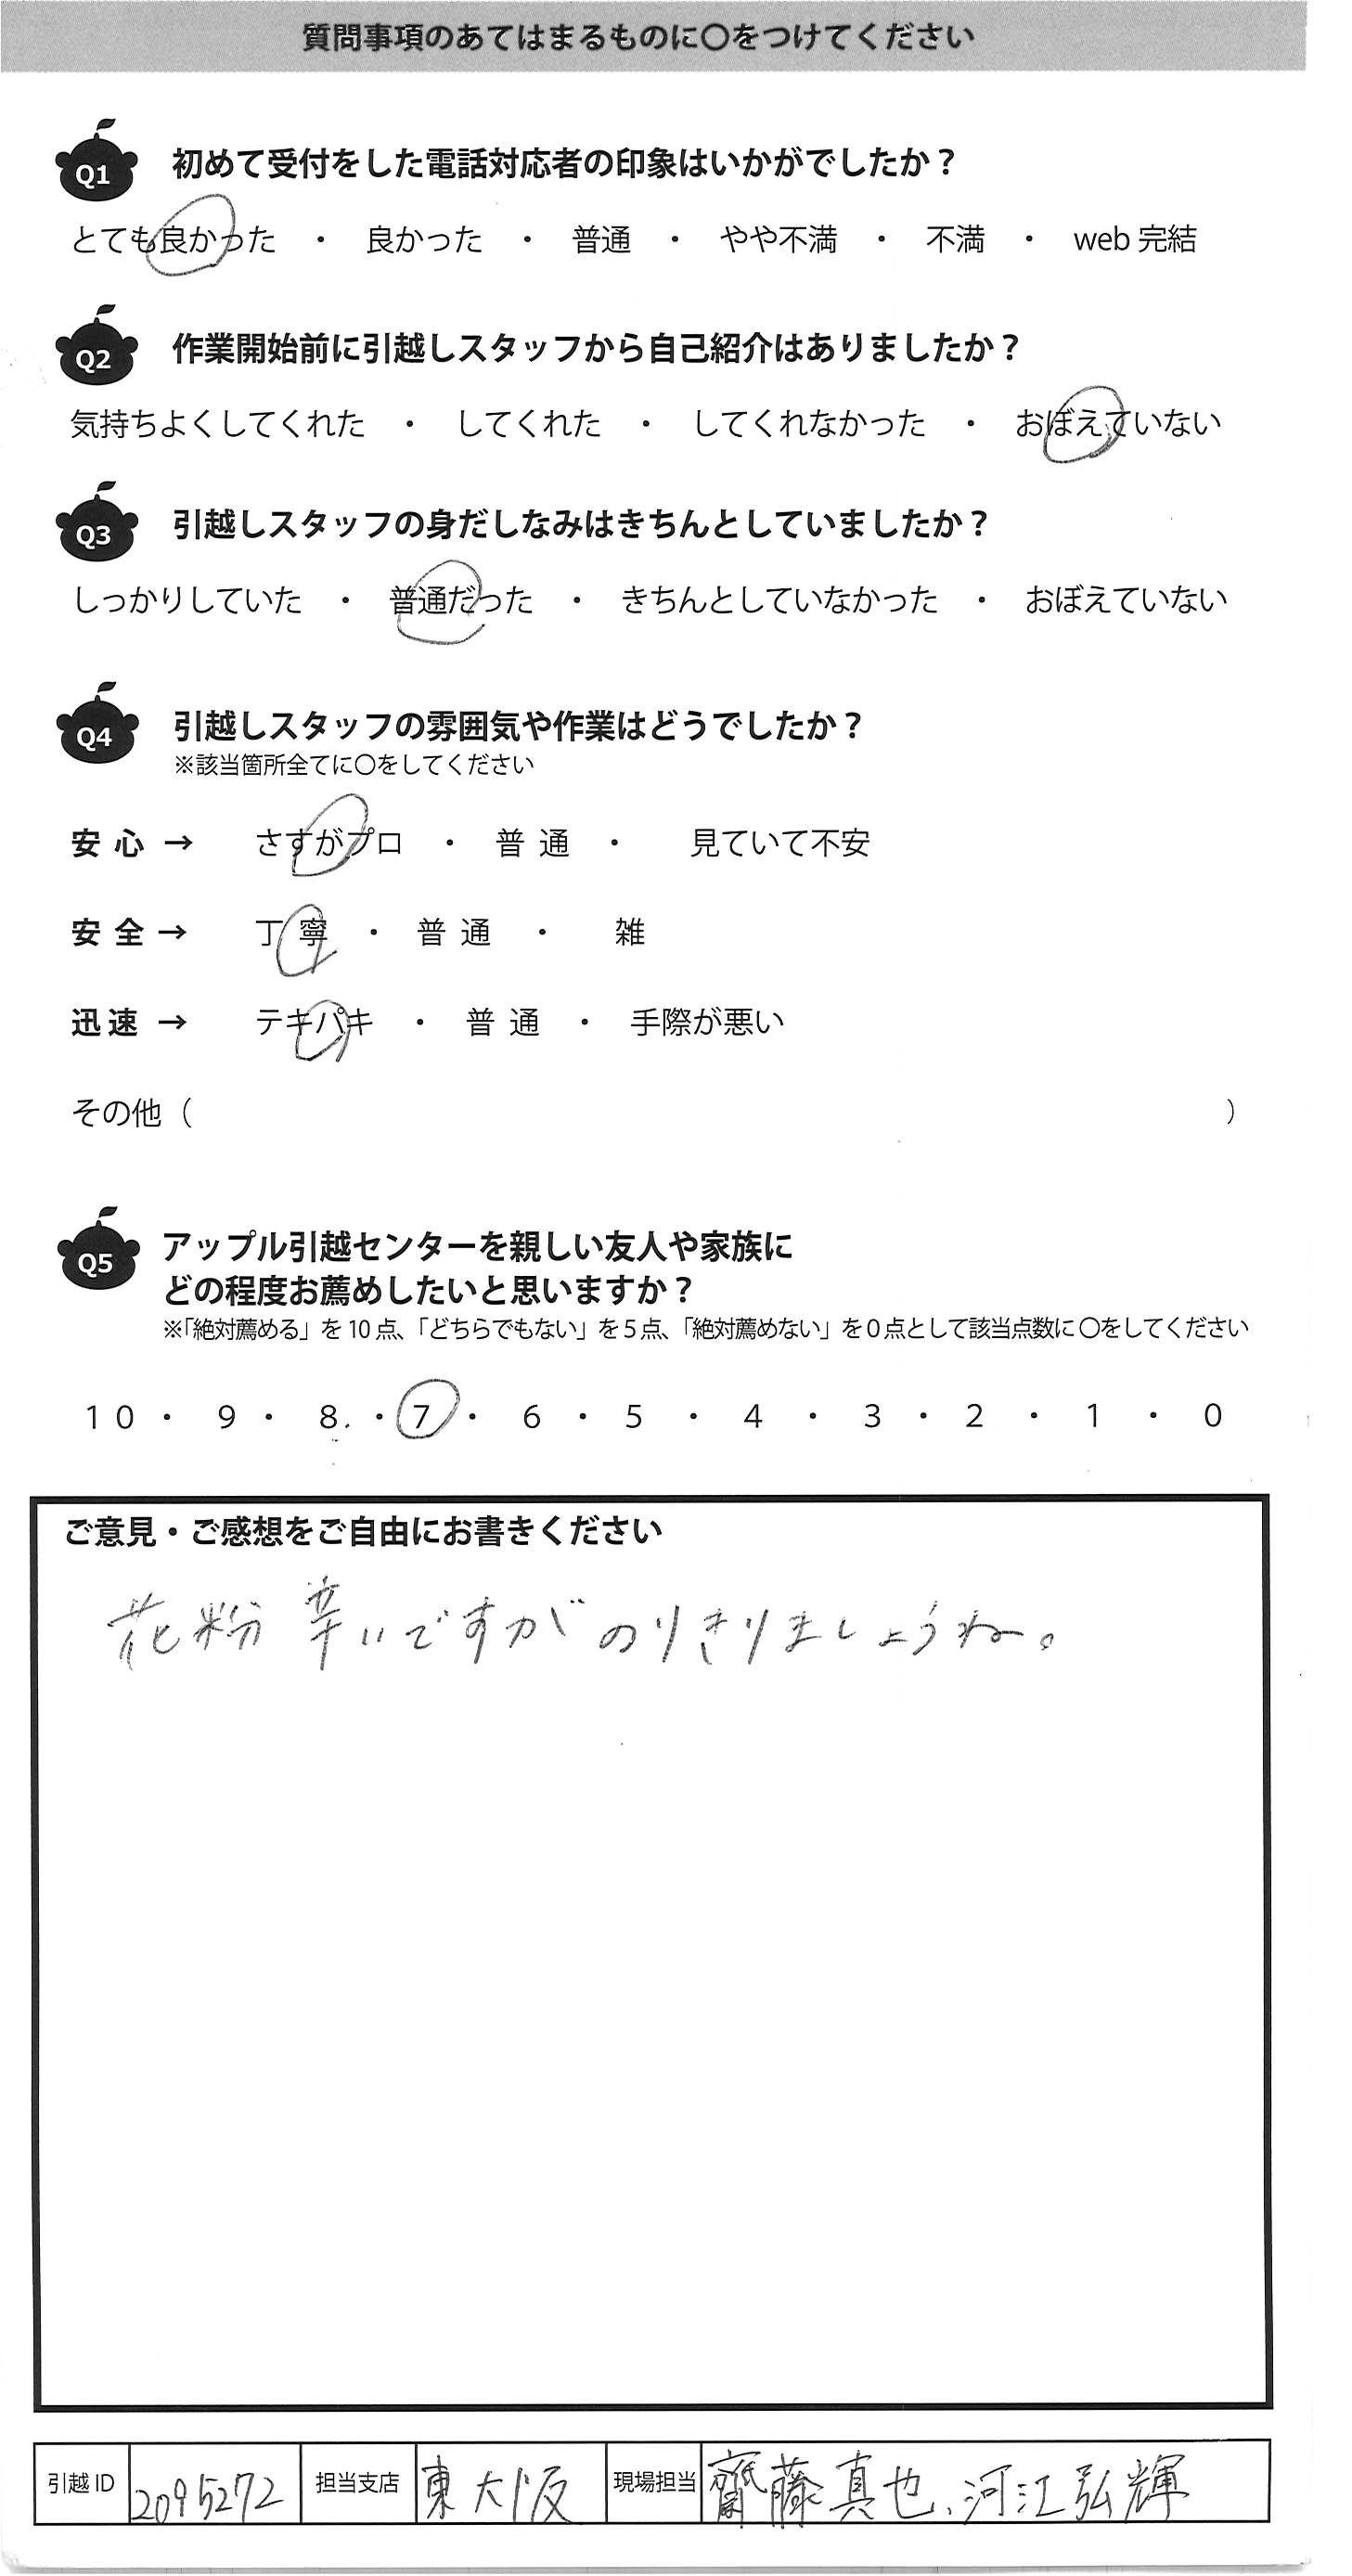 質問事項のあてはまるものに〇をつけてください
Q1 初めて受付をした電話対応者の印象はいかがでしたか？
とても良かった ・ 良かった ・ 普通 ・ やや不満 ・ 不満 ・ web 完結
Q2 作業開始前に引越しスタッフから自己紹介はありましたか？
気持ちよくしてくれた ・ してくれた ・ してくれなかった ・ おぼえていない
Q3 引越しスタッフの身だしなみはきちんとしていましたか？
しっかりしていた ・ 普通だった ・ きちんとしていなかった ・ おぼえていない
Q4 引越しスタッフの雰囲気や作業はどうでしたか？
※該当箇所全てに〇をしてください
安 心 → さすがプロ ・ 普 通 ・ 見ていて不安
安 全 → 丁 寧 ・ 普 通 ・ 雑
迅 速 → テキパキ ・ 普 通 ・ 手際が悪い
その他（ ）
Q5 アップル引越センターを親しい友人や家族に
どの程度お薦めしたいと思いますか？
※「絶対薦める」を 10 点、「どちらでもない」を 5 点、「絶対薦めない」を 0 点として該当点数に 〇をしてください
10 ・ 9 ・ 8 ・ 7 ・ 6 ・ 5 ・ 4 ・ 3 ・ 2 ・ 1 ・ 0
ご意見・ご感想をご自由にお書きください
花粉 辛いですが のりきりましょうね。
引越 ID 2095272 担当支店 東大阪 現場担当 齋藤真也、河江弘輝